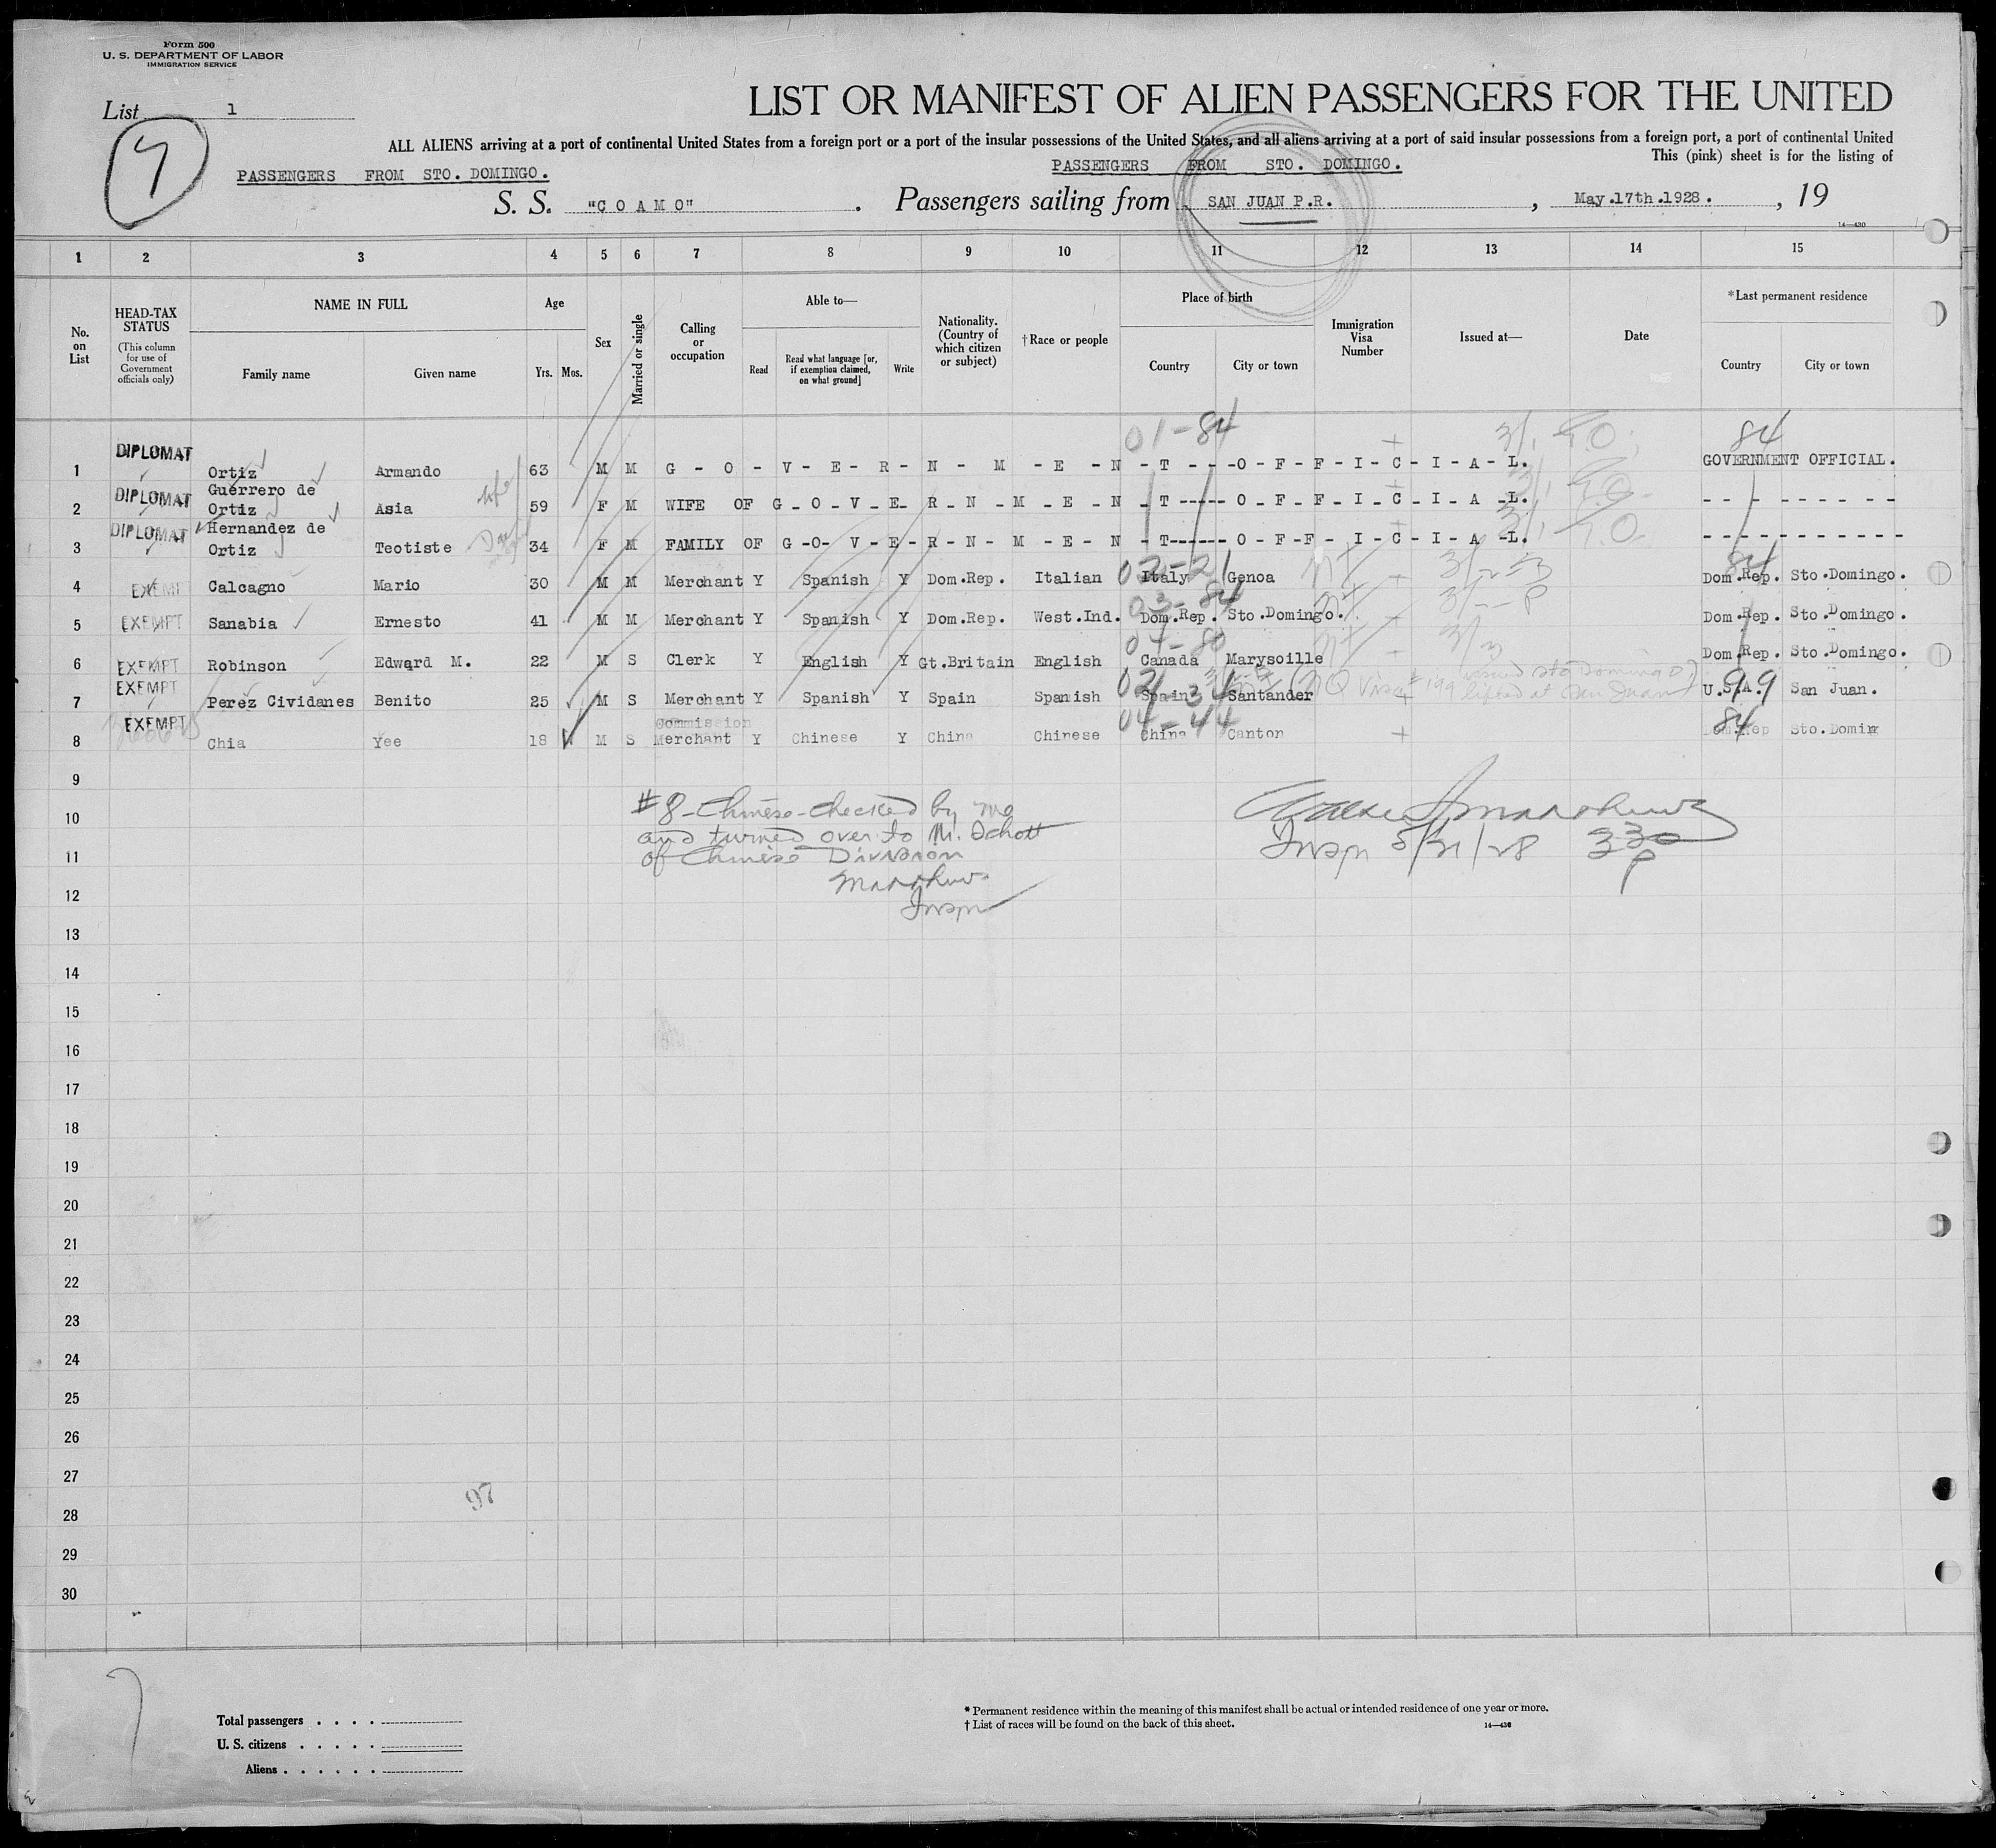 Form 500
U. S. DEPARTMENT OF LABOR
IMMIGRATION SERVICE
List 1
7
LIST OR MANIFEST OF ALIEN PASSENGERS FOR THE UNITED
ALL ALIENS arriving at a port of continental United States from a foreign port or a port of the insular possessions of the United States, and all aliens arriving at a port of said insular possessions from a foreign port, a port of continental United
This (pink) sheet is for the listing of
PASSENGERS FROM STO. DOMINGO. PASSENGERS FROM STO. DOMINGO.
S. S. "C O A M O" . Passengers sailing from SAN JUAN P.R. , May.17th.1928. , 19
14—430
1 2 3 4 5 6 7 8 9 10 11 12 13 14 15
No. on List
HEAD-TAX STATUS
(This column for use of Government officials only)
NAME IN FULL
Family name Given name
Age
Yrs. Mos.
Sex
Married or single
Calling or occupation
Able to—
Read
Read what language [or, if exemption claimed, on what ground]
Write
Nationality. (Country of which citizen or subject)
†Race or people
Place of birth
Country City or town
Immigration Visa Number
Issued at—
Date
*Last permanent residence
Country City or town
01-84 84
1 DIPLOMAT Ortiz Armando 63 M M G - O - V - E - R - N - M - E - N - T - - -O - F - F - I - C - I - A - L. GOVERNMENT OFFICIAL.
2 DIPLOMAT Guerrero de Ortiz Asia wife 59 F M WIFE OF G - O - V - E - R - N - M - E - N - T ----- O - F - F - I - C - I - A -L. -- - -----
3 DIPLOMAT Hernandez de Ortiz Teotiste 34 F M FAMILY OF G -O- V - E - R - N- M - E - N - T----- O - F-F - I - C - I - A -L. - - - - - - - - - - -
02-21 84
4 EXEMPT Calcagno Mario 30 M M Merchant Y Spanish Y Dom.Rep. Italian Italy Genoa Dom.Rep. Sto.Domingo.
03-84
5 EXEMPT Sanabia Ernesto 41 M M Merchant Y Spanish Y Dom.Rep. West.Ind. Dom.Rep. Sto.Domingo. Dom.Rep. Sto.Domingo.
04-80
6 EXEMPT Robinson Edward M. 22 M S Clerk Y English Y Gt.Britain English Canada Marysoille Dom.Rep. Sto.Domingo.
issued Sto Domingo
NQ Visa #199 lifted at San Juan
7 EXEMPT Perez Cividanes Benito 25 M S Merchant Y Spanish Y Spain Spanish Spain Santander U.S.A. 99 San Juan.
04-44 84
8 EXEMPT Chia Yee 18 M S Commission Merchant Y Chinese Y China Chinese China Canton Dom.Rep Sto.Domin
9
#8-Chinese-checked by me
10
and turned over to Mr. Schott
11
of Chinese Division
Insp 5/21/28 330 P
Matthews
12
Insp
13
14
15
16
17
18
19
20
21
22
23
24
25
26
27
97
28
29
30
7
Total passengers . . . .
U. S. citizens . . . . .
Aliens . . . . . .
* Permanent residence within the meaning of this manifest shall be actual or intended residence of one year or more.
† List of races will be found on the back of this sheet.
14—430